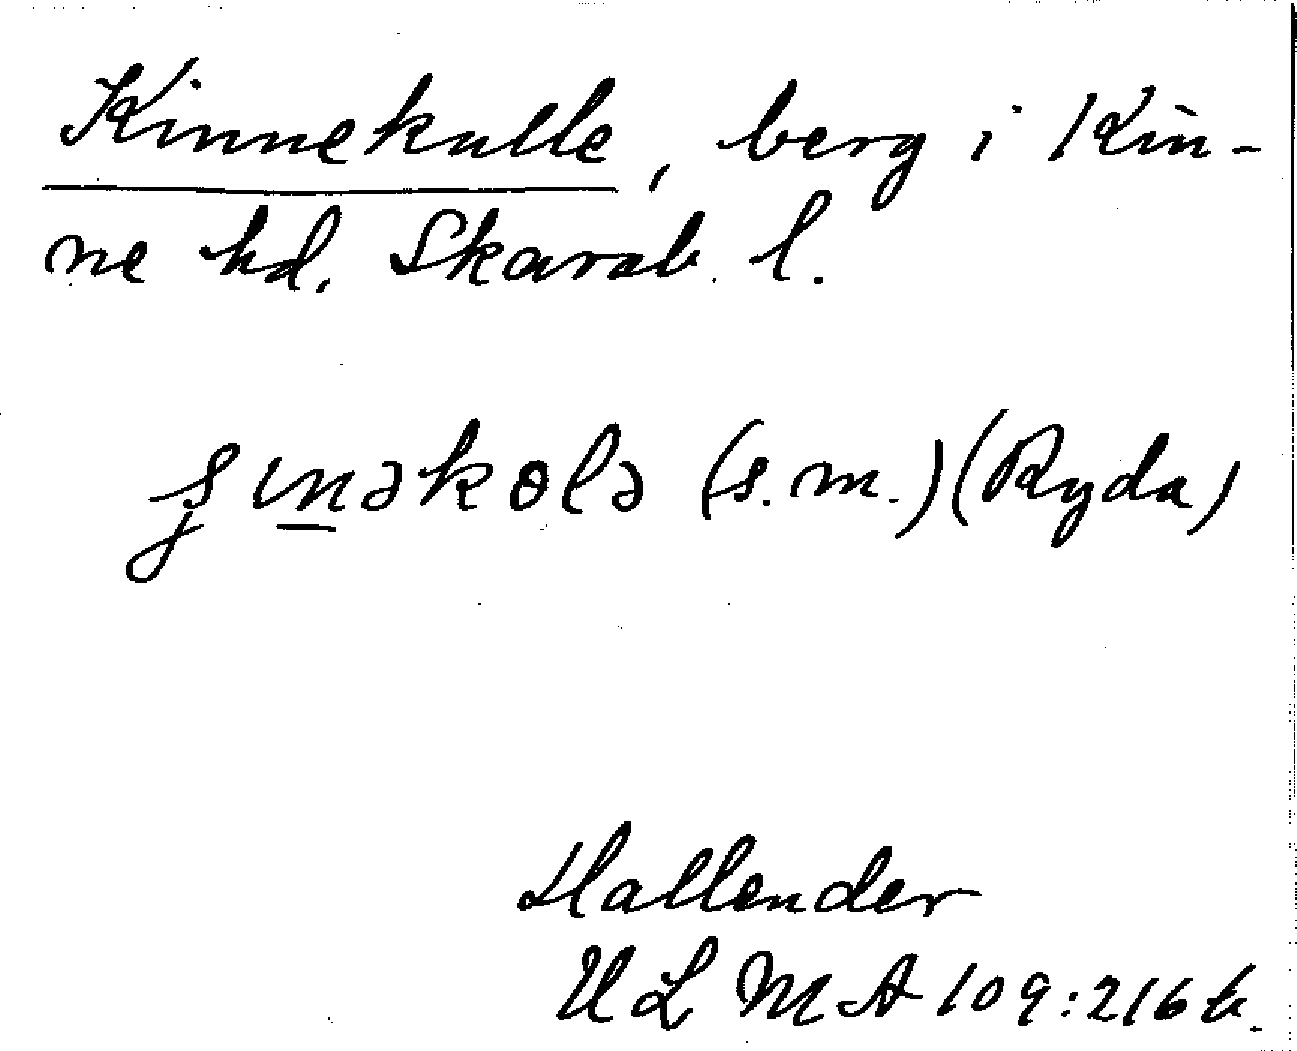 Kinnekulle, berg i Kin-
ne hd. Skarab. l.
(s.m.) (Ryda)
Hallender
ULMA 109:216 k.